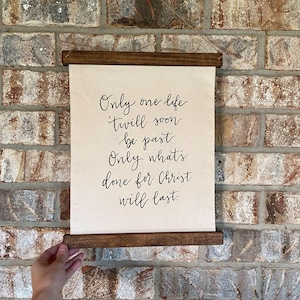 Only one life
'twill soon
be past
Only what's
done for Christ
will last.